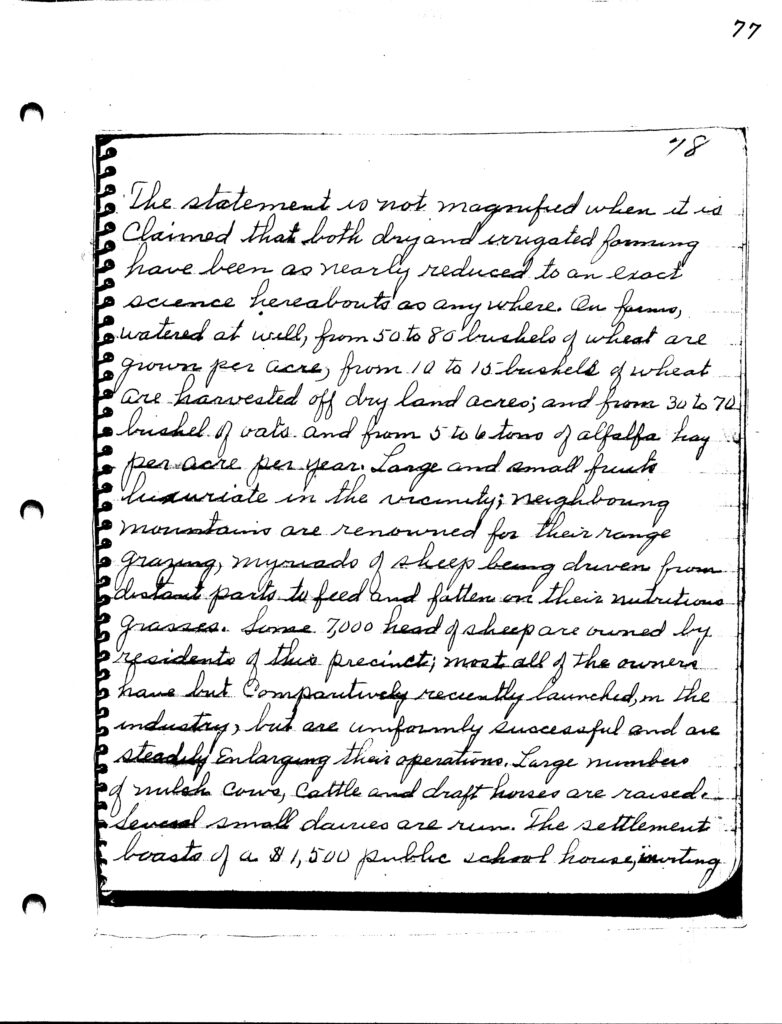 77
78
The statement is not magnified when it is
Claimed that both dry and irrigated farming
have been as nearly reduced to an exact
science hereabouts as any where. On farms,
watered at will, from 50 to 80 bushels of wheat are
grown per acre, from 10 to 15 bushels of wheat
are harvested off dry land acres; and from 30 to 70
bushel of oats and from 5 to 6 tons of alfalfa hay
per acre per year. Large and small fruits
luxuriate in the vicinity; neighbouring
mountains are renowned for their range
grazing, myriads of sheep being driven from
distant parts to feed and fatten on their nutritious
grasses. Some 7,000 head of sheep are owned by
residents of this precinct; most all of the owners
have but Comparitively recently launched, in the
industry, but are uniformly successful and are
steadily Enlarging their operations. Large numbers
of milch Cows, Cattle and draft horses are raised.
Several small dairies are run. The settlement
boasts of a $1,500 public school house,